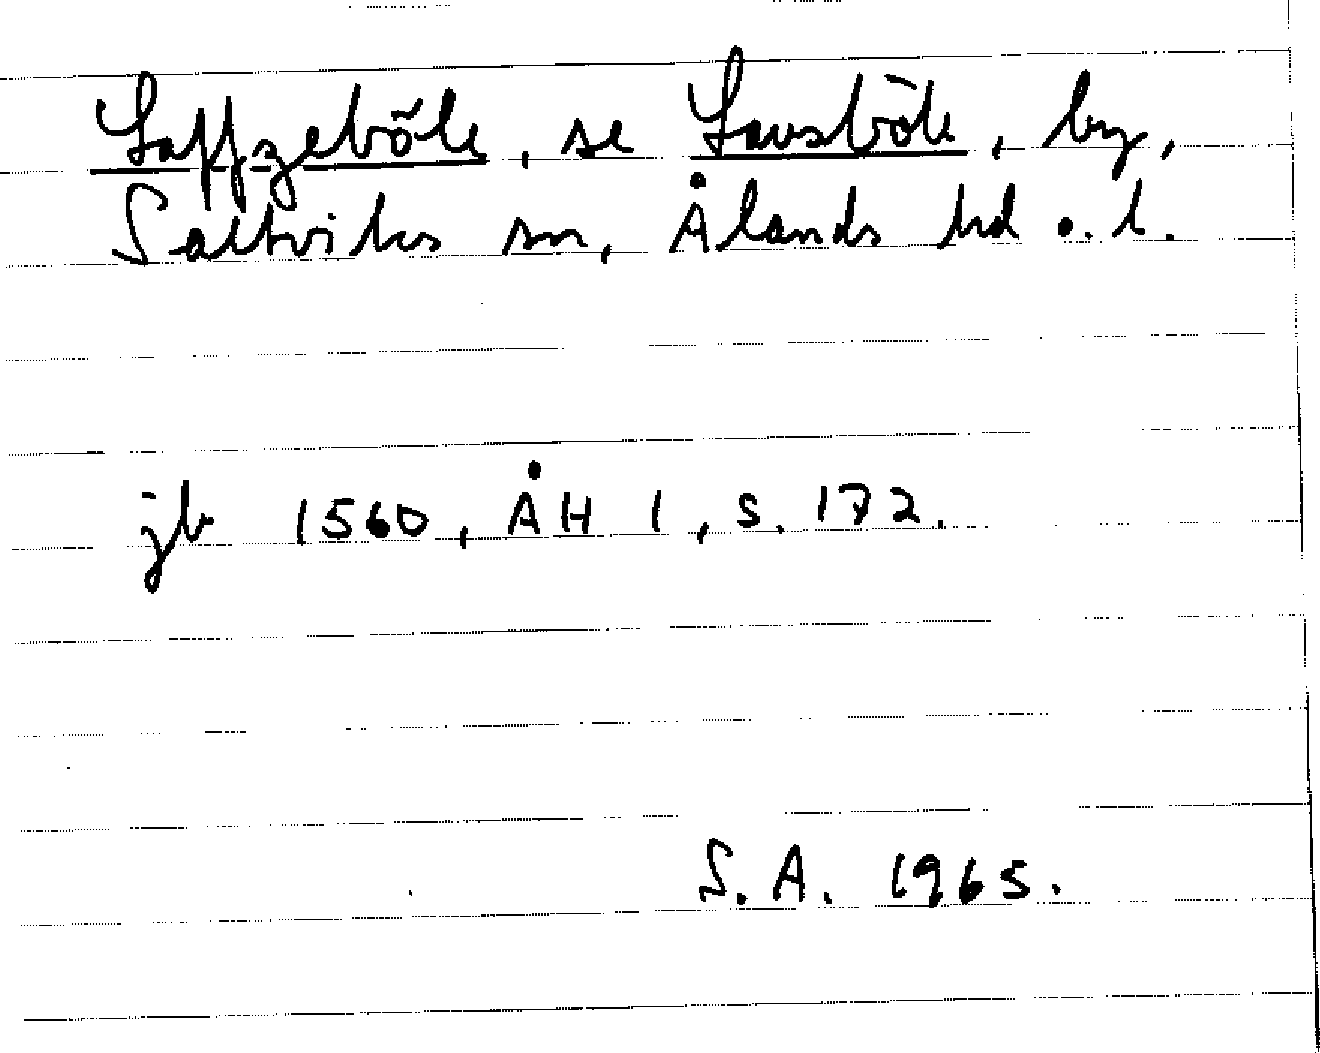 Laffzeböle, se Lavsböle, by,
Saltviks sn, Ålands hd o. l.
jb 1560, ÅH 1, s. 172.
S.A. 1965.